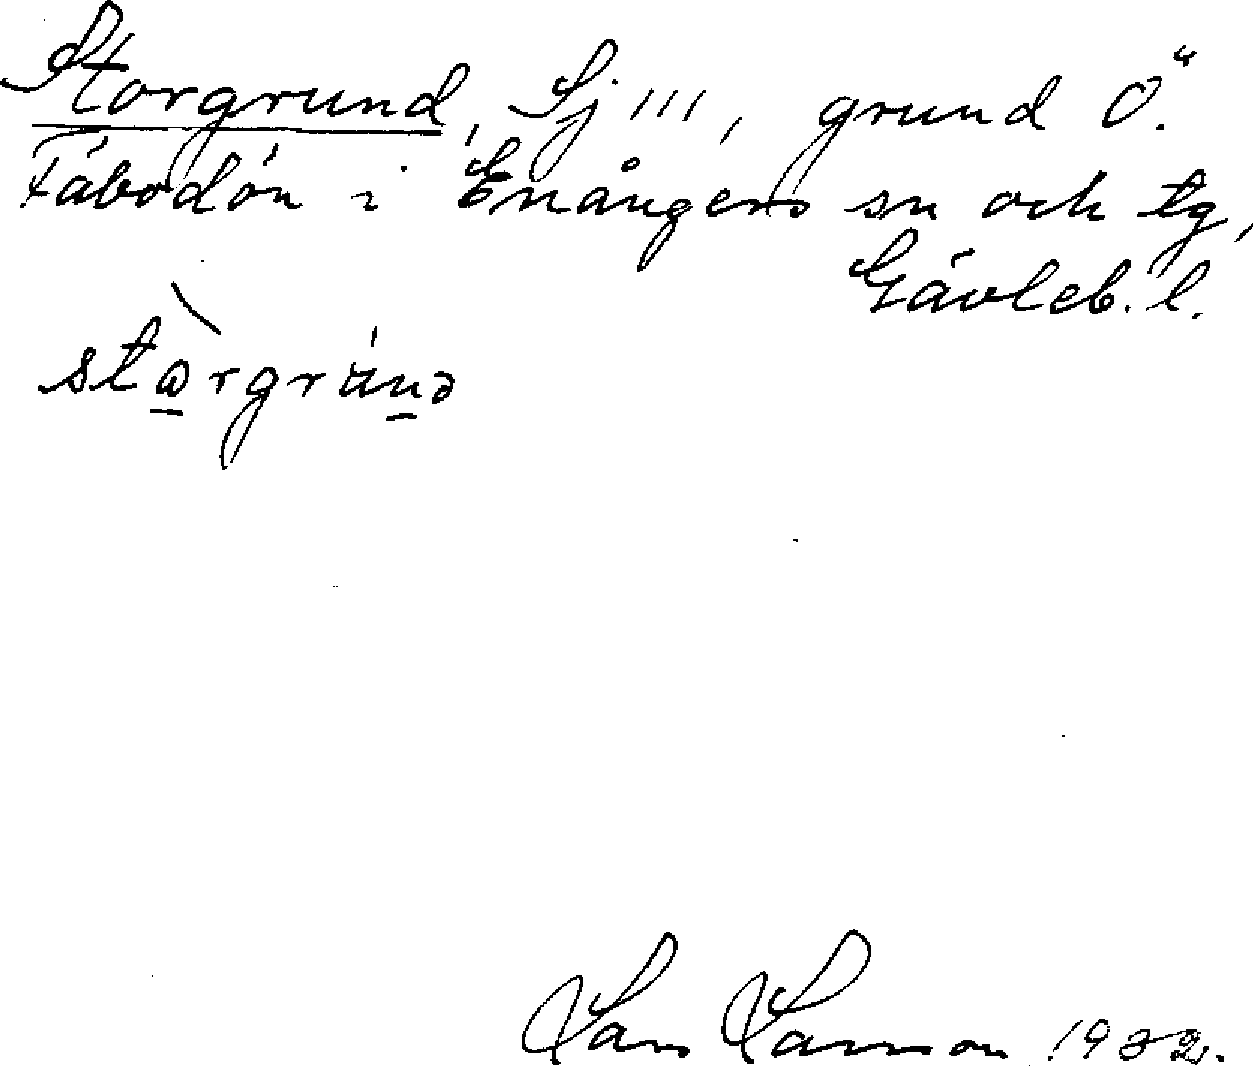 Storgrund, Sj III, grund Ö.
Fäbodön i Enångers sn och tg,
Gävleb. l.
Lars Larsson 1932.